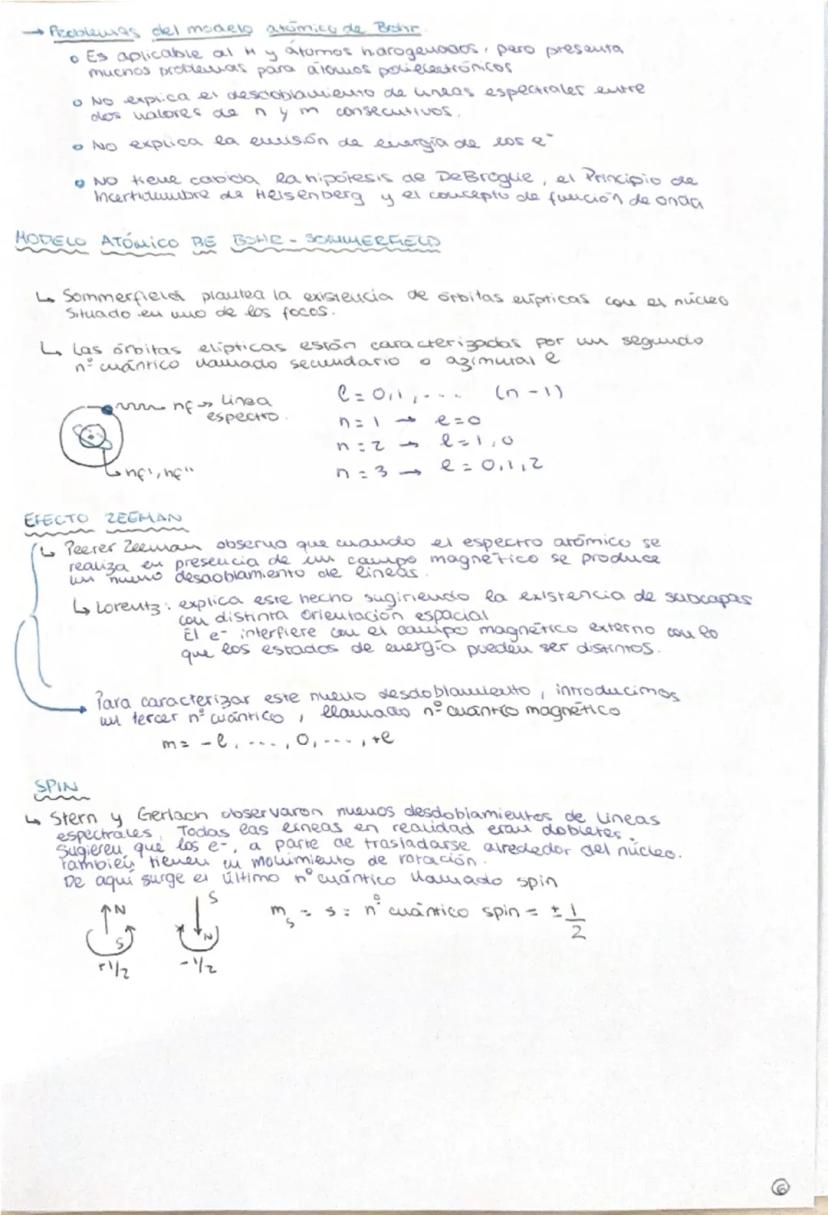 → Problemas del modelo atómico de Bohr
• Es aplicable al H y átomos hidrogenados, pero presenta
muchos problemas para átomos polielectrónicos
• No explica el desdoblamiento de líneas espectrales entre
dos valores de n y m consecutivos.
• No explica la emisión de energía de los e⁻
• No tiene cabida la hipótesis de DeBroglie, el Principio de
Incertidumbre de Heisenberg y el concepto de función de onda
MODELO ATÓMICO DE BOHR - SOMMERFIELD
↳ Sommerfield plantea la existencia de órbitas elípticas con el núcleo
situado en uno de los focos.
↳ Las órbitas elípticas están caracterizadas por un segundo
nº cuántico llamado secundario o azimutal l
nf → línea
espectro.
nf', nf''
l = 0, 1, ... (n-1)
n = 1 → l = 0
n = 2 → l = 1, 0
n = 3 → l = 0, 1, 2
EFECTO ZEEMAN
↳ Peerer Zeeman observa que cuando el espectro atómico se
realiza en presencia de un campo magnético se produce
un nuevo desdoblamiento de líneas.
↳ Lorentz: explica este hecho sugiriendo la existencia de subcapas
con distinta orientación espacial
El e⁻ interfiere con el campo magnético externo con lo
que los estados de energía pueden ser distintos.
Para caracterizar este nuevo desdoblamiento, introducimos
un tercer nº cuántico, llamado nº cuántico magnético
m = -l, ..., 0, ..., +l
SPIN
↳ Stern y Gerlach observaron nuevos desdoblamientos de líneas
espectrales. Todas las líneas en realidad eran dobletes.
Sugieren que los e⁻, a parte de trasladarse alrededor del núcleo.
También tienen un movimiento de rotación.
De aquí surge el último nº cuántico llamado spin
N
S
+1/2
S
N
-1/2
mₛ = s = nº cuántico spin = ± 1/2
6